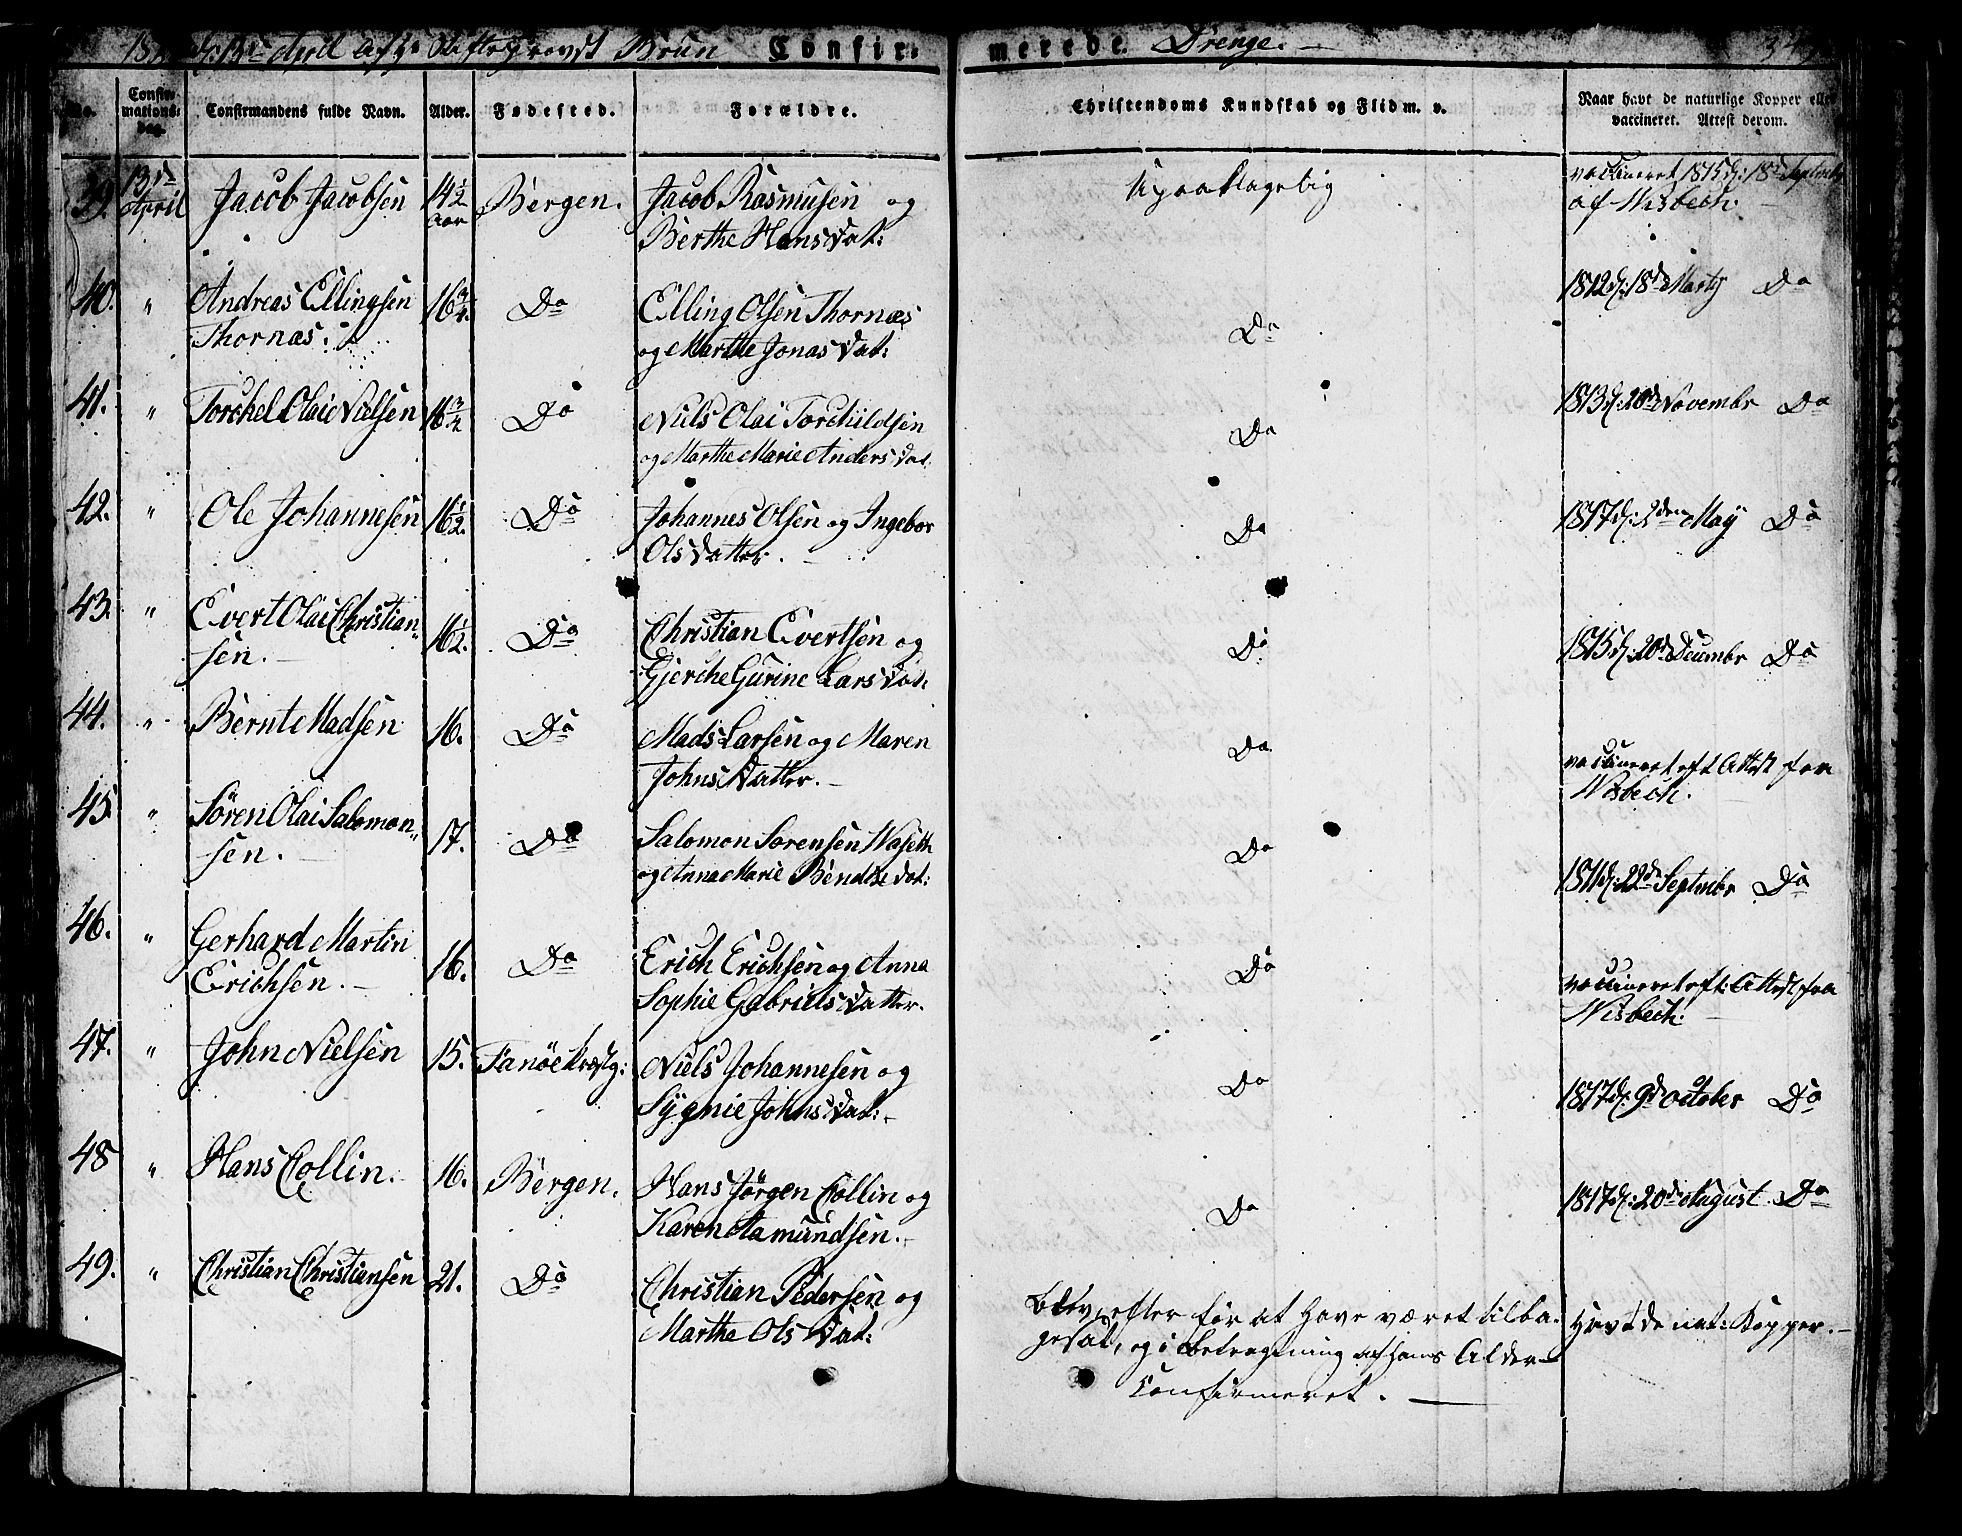 d: 13de April af Hr Stiftsprovst Brun Confir-
merede Drenge. 
No.
Confir-
mations-
dag.
Confirmandens fulde Navn.
Alder.
Fødested.
Forældre.
Christendoms Kundskab og Flid m. v.
Naar havt de naturlige Kopper eller
vaccineret. Attest derom.
39. 13de April Jacob Jacobsen 14 1/2 Aar Bergen. Jacob Rasmusen og
Berthe Hansdat:
Upaaklagelig
vaccineret 1815 d: 18de Septembr
af Wisbech.
40. " Andreas Ellingsen
Thornæs. 16 3/4 Do Elling Olsen Thornæs
og Marthe Jonasdat:
Do
1812 d: 18de Martj Do
41. " Torchel Olai Nielsen 16 3/4 Do Niels Olai Torchildsen
og Marthe Marie Andersdat.
Do
1813 d: 20de Novembr Do
42. " Ole Johannesen 16 1/2. Do Johannes Olsen og Ingebor
Olsdatter. -
Do
1817 d: 2den Maÿ Do
43. " Evert Olai Christian-
sen. - 16 1/2. Do Christian Evertsen og
Gjerche Gurine Larsdat:
Do
1815 d: 20de Decembr Do
44. " Bernt Madsen 16. Do Mads Larsen og Maren
Johnsdatter. -
Do
vaccineret eft Attest fra
Wisbech.
45. " Sören Olai Salomon-
sen. 17. Do Salomon Sörensen
og Anna Marie Bendtsedat:
Do
1811 d: 22de Septembr Do
46. " Gerhard Martin
Erichsen. - 16. Do Erich Erichsen og Anna
Sophie Gabrielsdatter.
Do
vaccineret eft: Attest fra
Wisbech.
47. " John Nielsen 15. Fanöe Præstg: Niels Johannesen og
Sÿgnie Johnsdat: -
Do
1817 d: 9de October Do
48 " Hans Collin. 16. Bergen. Hans Jörgen Collin og
Karen Amundsen. -
Do
1817 d: 20de August Do
49. " Christian Christiansen 21. Do Christian Pedersen og
Marthe Olsdat:
Blev, efter för at have været tilba-
gesat, og i Betragtning af hans Alder
Confirmeret. -
Havt de nat: Kopper. -